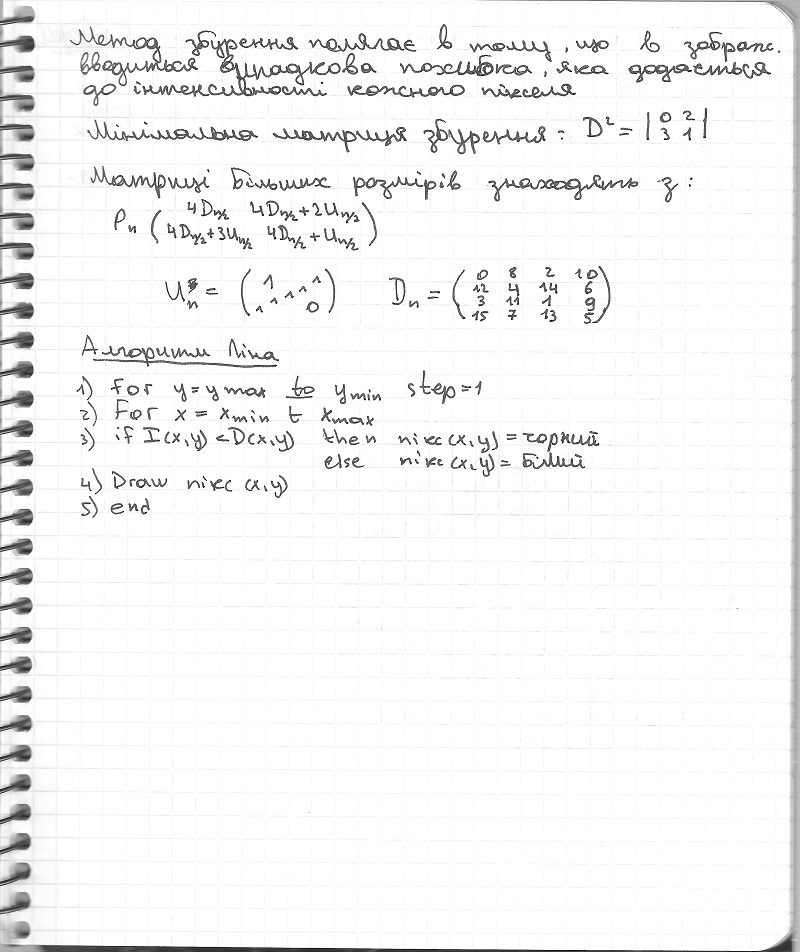 Метод збурення полягає в тому, що в зображ.
вводиться випадкова похибка, яка додається
до інтенсивності кожного пікселя
Мінімальна матриця збурення: D² = | 0 2 |
| 3 1 |
Матриці більших розмірів знаходять з:
Pₙ ( 4Dₙ/₂ 4Dₙ/₂+2Uₙ/₂ )
( 4Dₙ/₂+3Uₙ/₂ 4Dₙ/₂+Uₙ/₂ )
Uₙ = ( 1 1 1 1 1 1 0 ) Dₙ = ( 0 8 2 10 )
( 12 4 14 6 )
( 3 11 1 9 )
( 15 7 13 5 )
Алгоритм Ліна
1) for y = y max to y min step=1
2) For x = x min t x max
3) if I(x,y) < D(x,y) then пікс(x,y) = чорний
else пікс(x,y) = білий
4) Draw пікс (x,y)
5) end